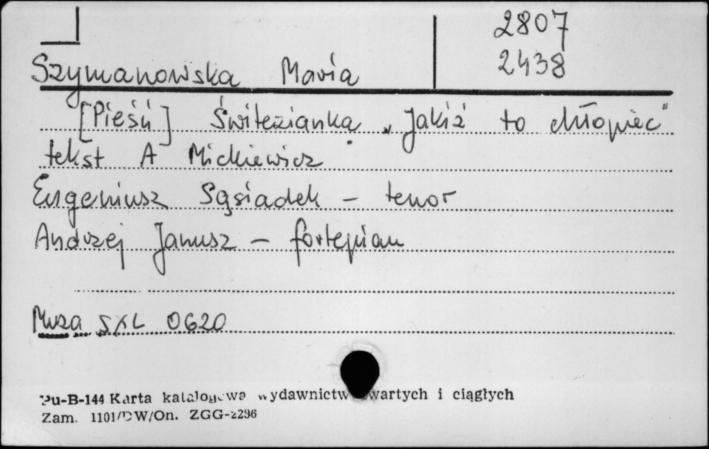 2807
2438
Szymanowska Maria
[Pieśń] Świtezianka „Jakiż to chłopiec"
tekst A Mickiewicz
Eugeniusz Sąsiadek – tenor
Andrzej Janusz – fortepian
Muza SXL 0620
Pu-B-144 Karta katalogowa wydawnictw zwartych i ciągłych
Zam. 1101/DW/On. ZGG-2296